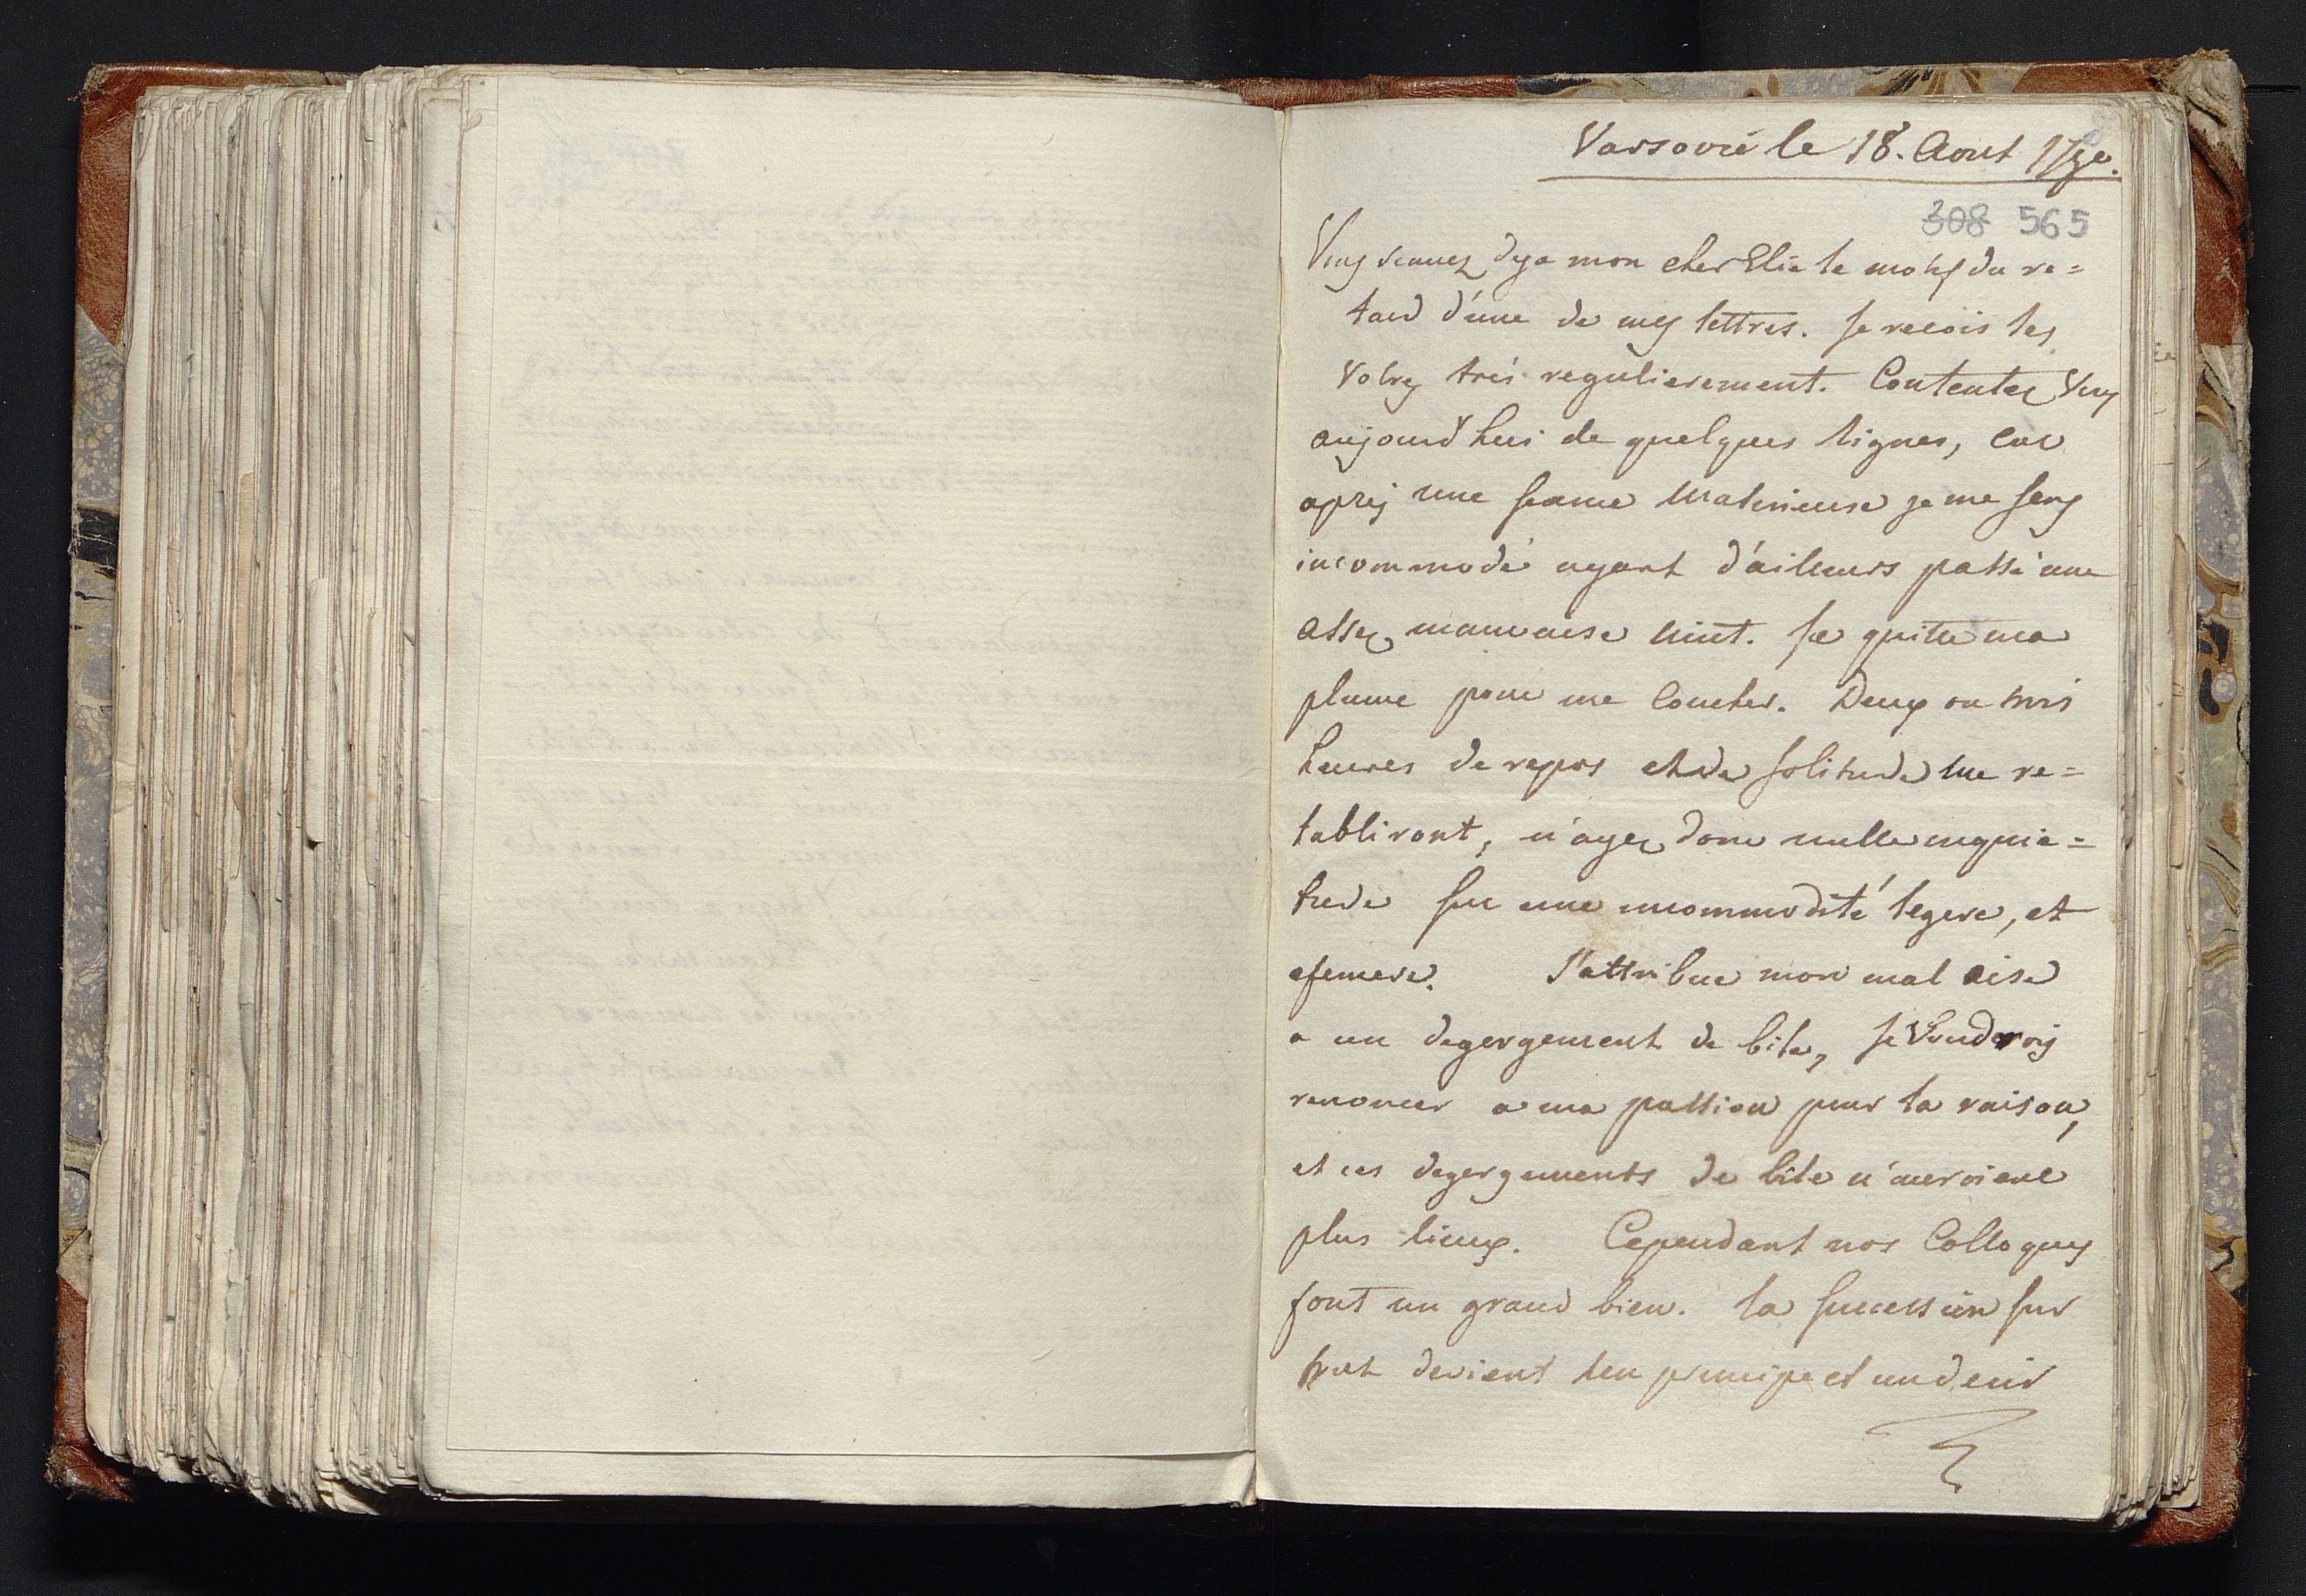 Varsovie le 18. Aout 1790.
308 565
Vous scavez deja mon cher Elie le motif du re=
tard d'une de mes lettres. Je recois les
votres très regulierement. Contentez Vous
aujourd'hui de quelques lignes, car
apres une seance matinieuse je me sens
incommodé ayant d'ailleurs passé une
assez mauvaise nuit. Je quitte ma
plume pour me coucher. Deux ou trois
heures de repos et de solitude me re=
tabliront, n'ayez donc nulle inquie=
tude sur une incommodité legere, et
efemere. J'attribue mon mal aise
a un degorgement de bile, Je Voudrois
renoncer a ma passion pour la raison,
et ces degorgements de bile n'auroient
plus lieux. Cependant nos Colloques
font un grand bien. la succession sur
tout devient un principe et un desir